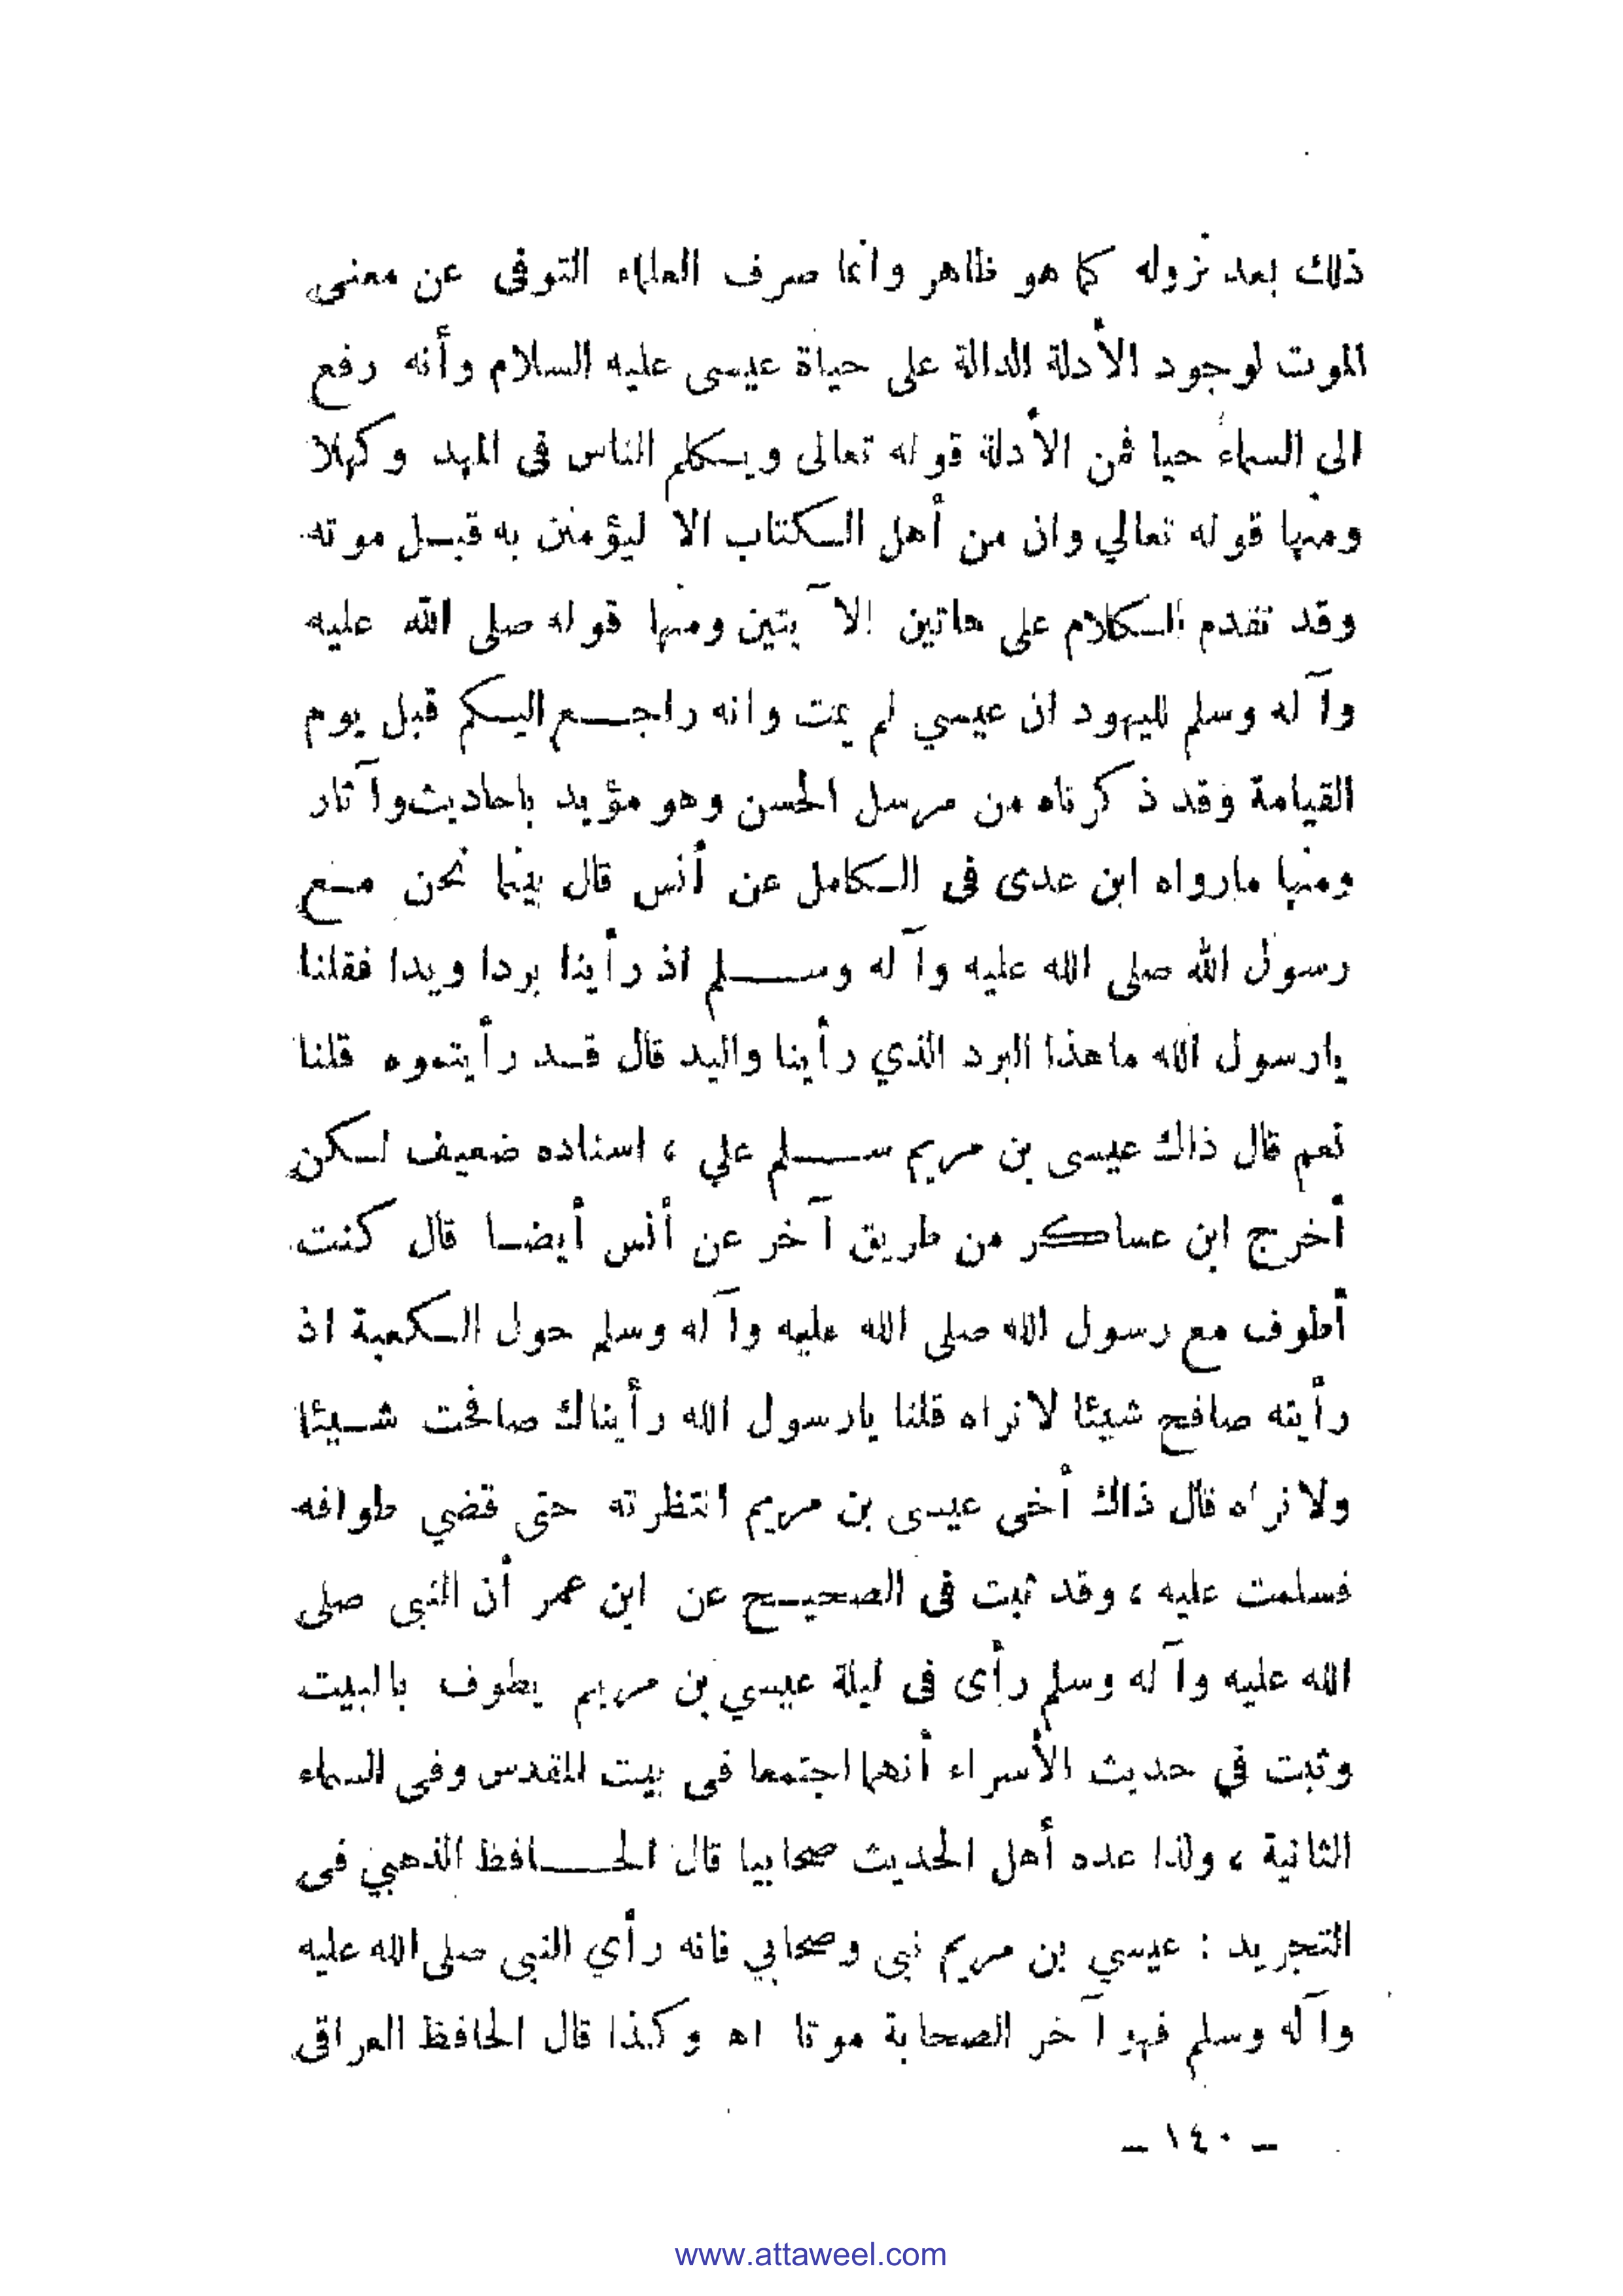 ذلك بعد نزوله كما هو ظاهر وانما صرف العلماء التوفى عن معنى
الموت لوجود الأدلة الدالة على حياة عيسى عليه السلام وأنه رفع
الى السماء حيا فمن الأدلة قوله تعالى ويكلم الناس فى المهد وكهلا
ومنها قوله تعالي وان من أهل الكتاب الا ليؤمنن به قبل موته
وقد تقدم الكلام على هاتين الآيتين ومنها قوله صلى الله عليه
وآله وسلم لليهود ان عيسي لم يمت وانه راجع اليكم قبل يوم
القيامة وقد ذكرناه من مرسل الحسن وهو مؤيد باحاديث وآثار
ومنها مارواه ابن عدى فى الكامل عن أنس قال بينما نحن مع
رسول الله صلى الله عليه وآله وسلم اذ رأينا بردا ويدا فقلنا
يارسول الله ماهذا البرد الذي رأينا واليد قال قد رأيتموه قلنا
نعم قال ذاك عيسى بن مريم سلم علي ، اسناده ضعيف لكن
أخرج ابن عساكر من طريق آخر عن أنس أيضا قال كنت
أطوف مع رسول الله صلى الله عليه وآله وسلم حول الكعبة اذ
رأيته صافح شيئا لانراه قلنا يارسول الله رأيناك صافحت شيئا
ولانراه قال ذاك أخى عيسى بن مريم انتظرته حتى قضي طوافه
فسلمت عليه ، وقد ثبت فى الصحيح عن ابن عمر أن النبى صلى
الله عليه وآله وسلم رأى فى ليلة عيسي بن مريم يطوف بالبيت
وثبت في حديث الأسراء أنهما اجتمعا فى بيت المقدس وفى السماء
الثانية ، ولذا عده أهل الحديث صحابيا قال الحافظ الذهبي فى
التجريد : عيسي بن مريم نبى وصحابي فانه رأي النبى صلى الله عليه
وآله وسلم فهو آخر الصحابة موتا اه وكذا قال الحافظ العراقى
– ١٤٠ –
www.attaweel.com